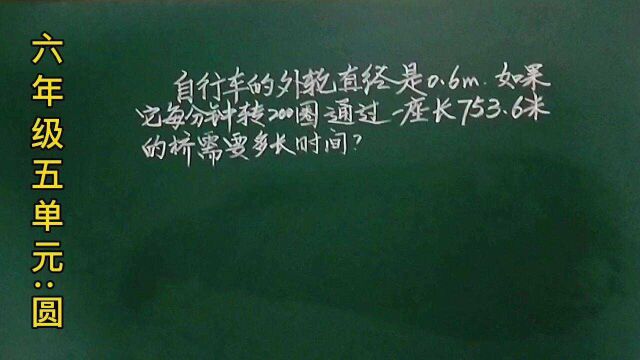 六年级五单元:圆
自行车的外轮直径是0.6m.如果
它每分钟转200圈通过一座长753.6米
的桥需要多长时间?